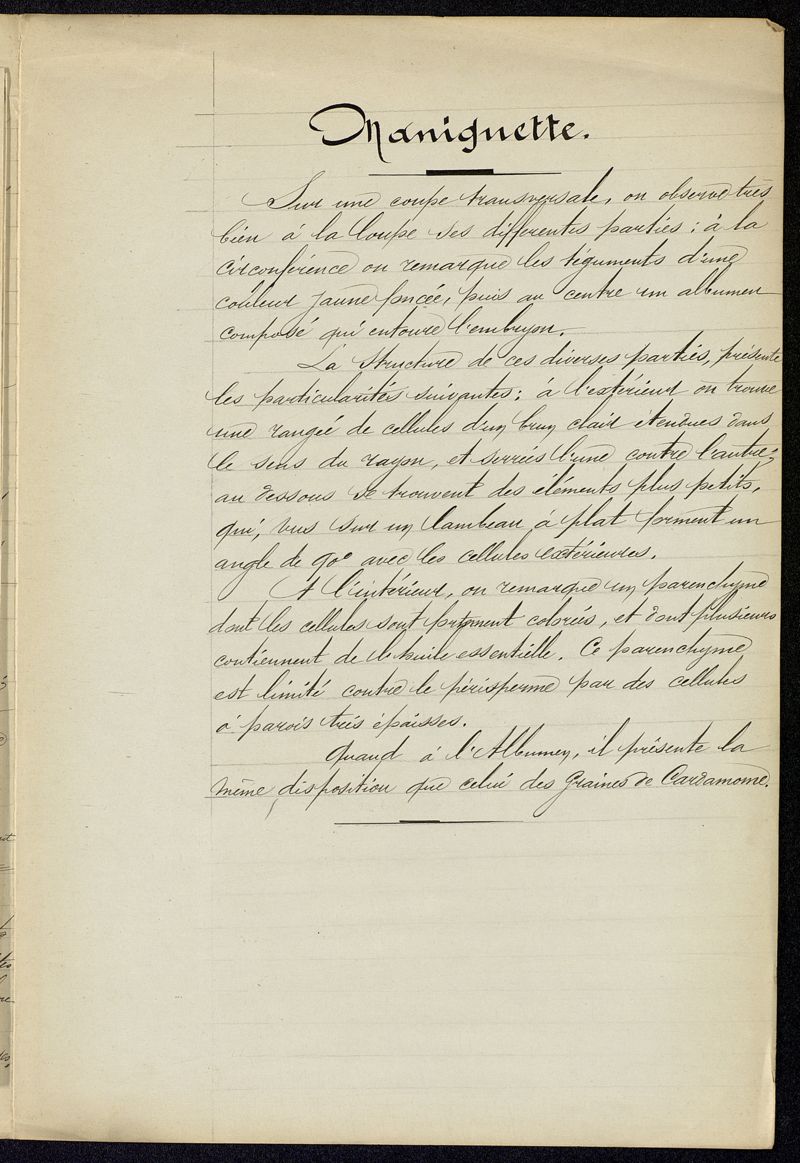 Maniguette.
Sur une coupe transversale, on observe très
bien à la loupe ses différentes parties : à la
circonférence on remarque les téguments d'une
couleur jaune foncée, puis au centre un albumen
composé qui entoure l'embryon.
La Structure de ces diverses parties, présente
les particularités suivantes : à l'extérieur on trouve
une rangée de cellules d'un brun clair étendues dans
le sens du rayon, et serrées l'une contre l'autre ;
au dessous se trouvent des éléments plus petits,
qui, vus sur un lambeau à plat forment un
angle de 90° avec les cellules extérieures.
A l'intérieur, on remarque un parenchyme
dont les cellules sont fortement colorées, et dont plusieurs
contiennent de l'huile essentielle. Ce parenchyme
est limité contre le périsperme par des cellules
à parois très épaisses.
Quand à l'Albumen, il présente la
même disposition que celui des Graines de Cardamome.